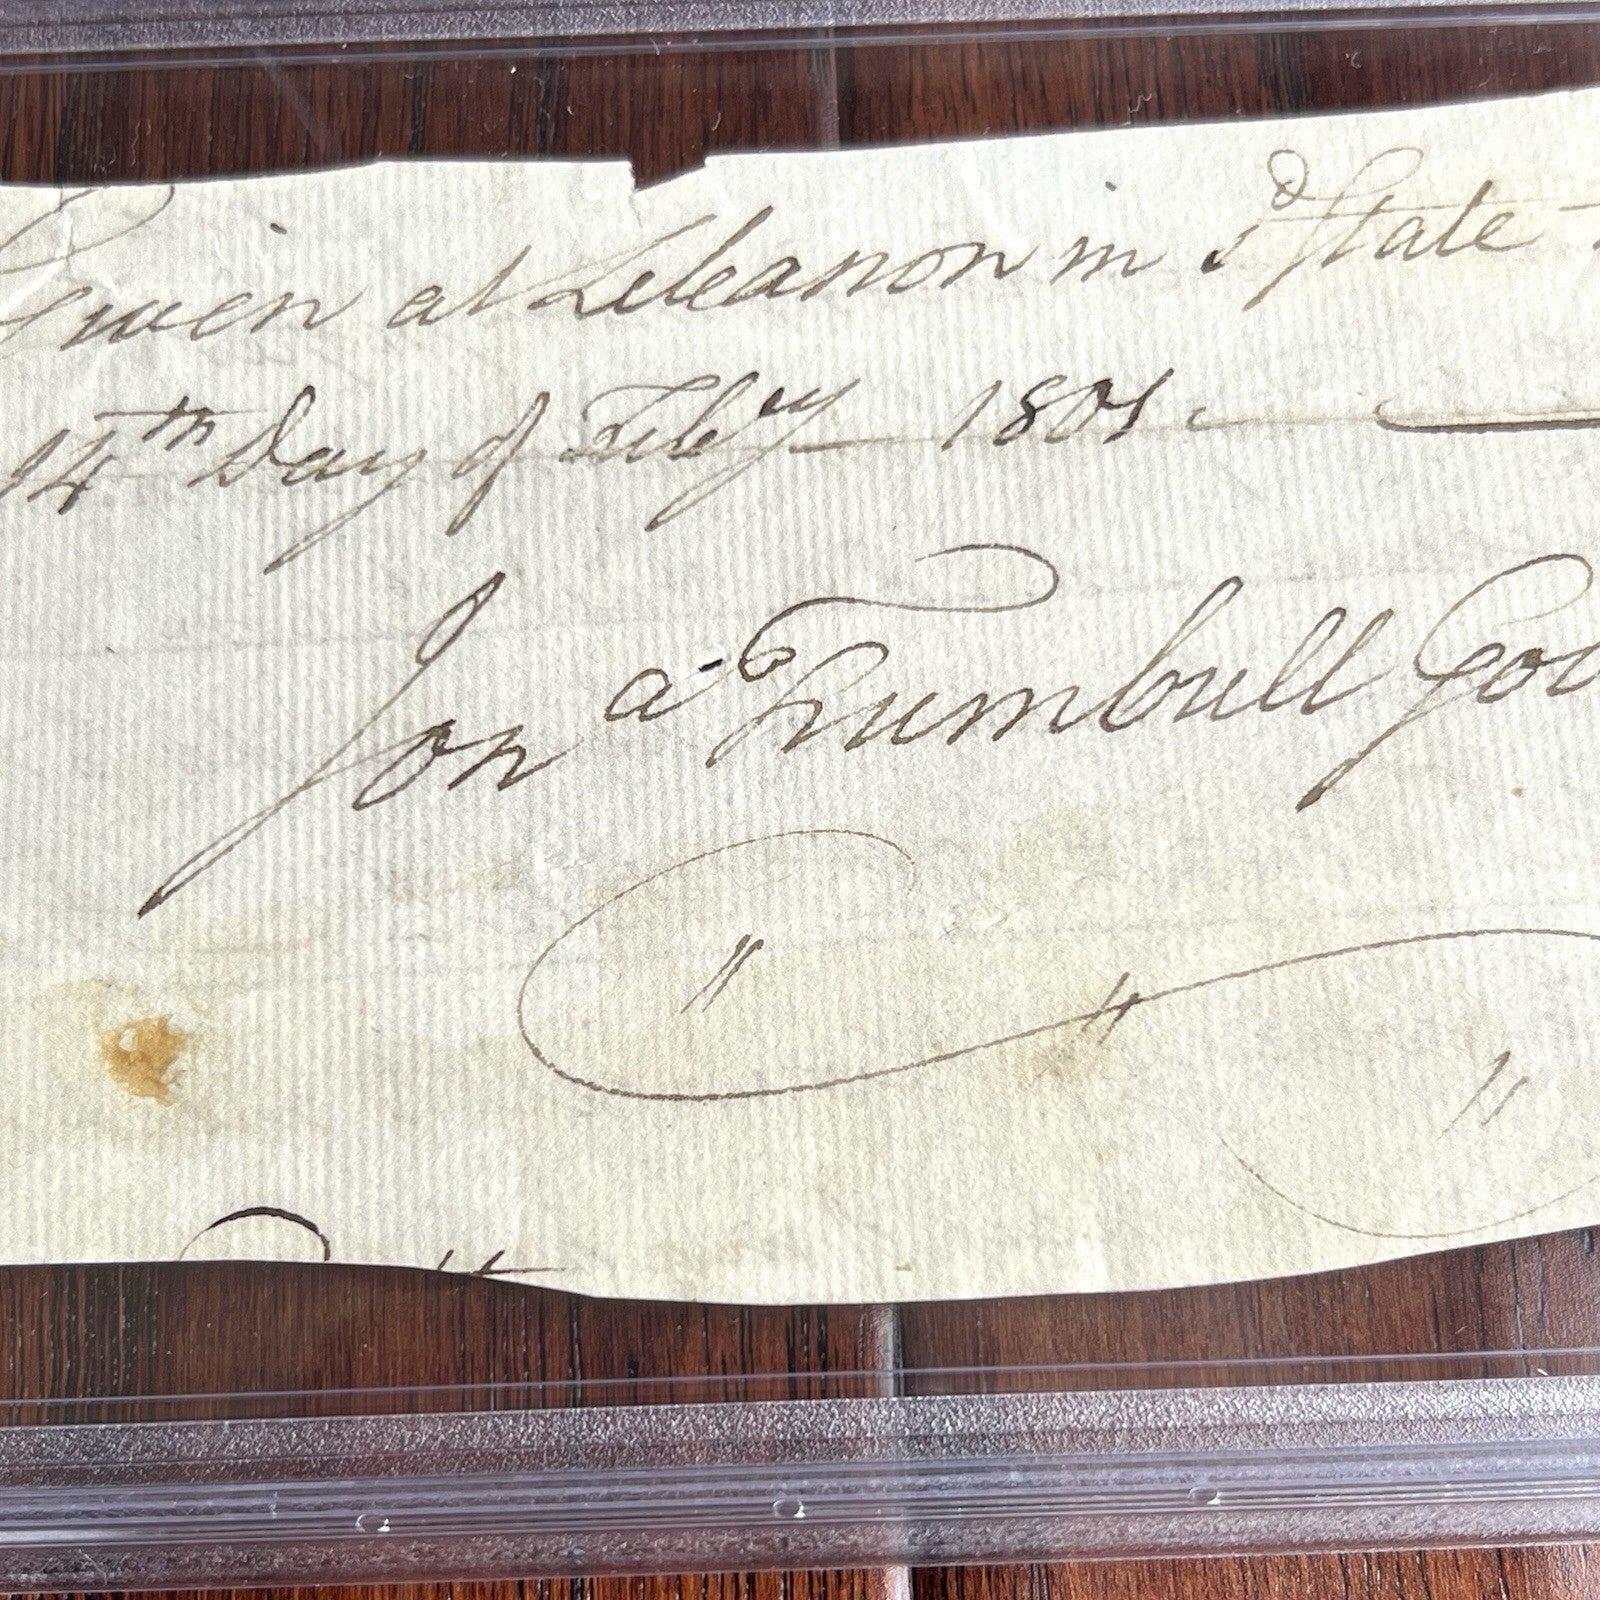 Given at Lebanon in sd State
14th Day of Feby 1801.
Jona Trumbull Gov